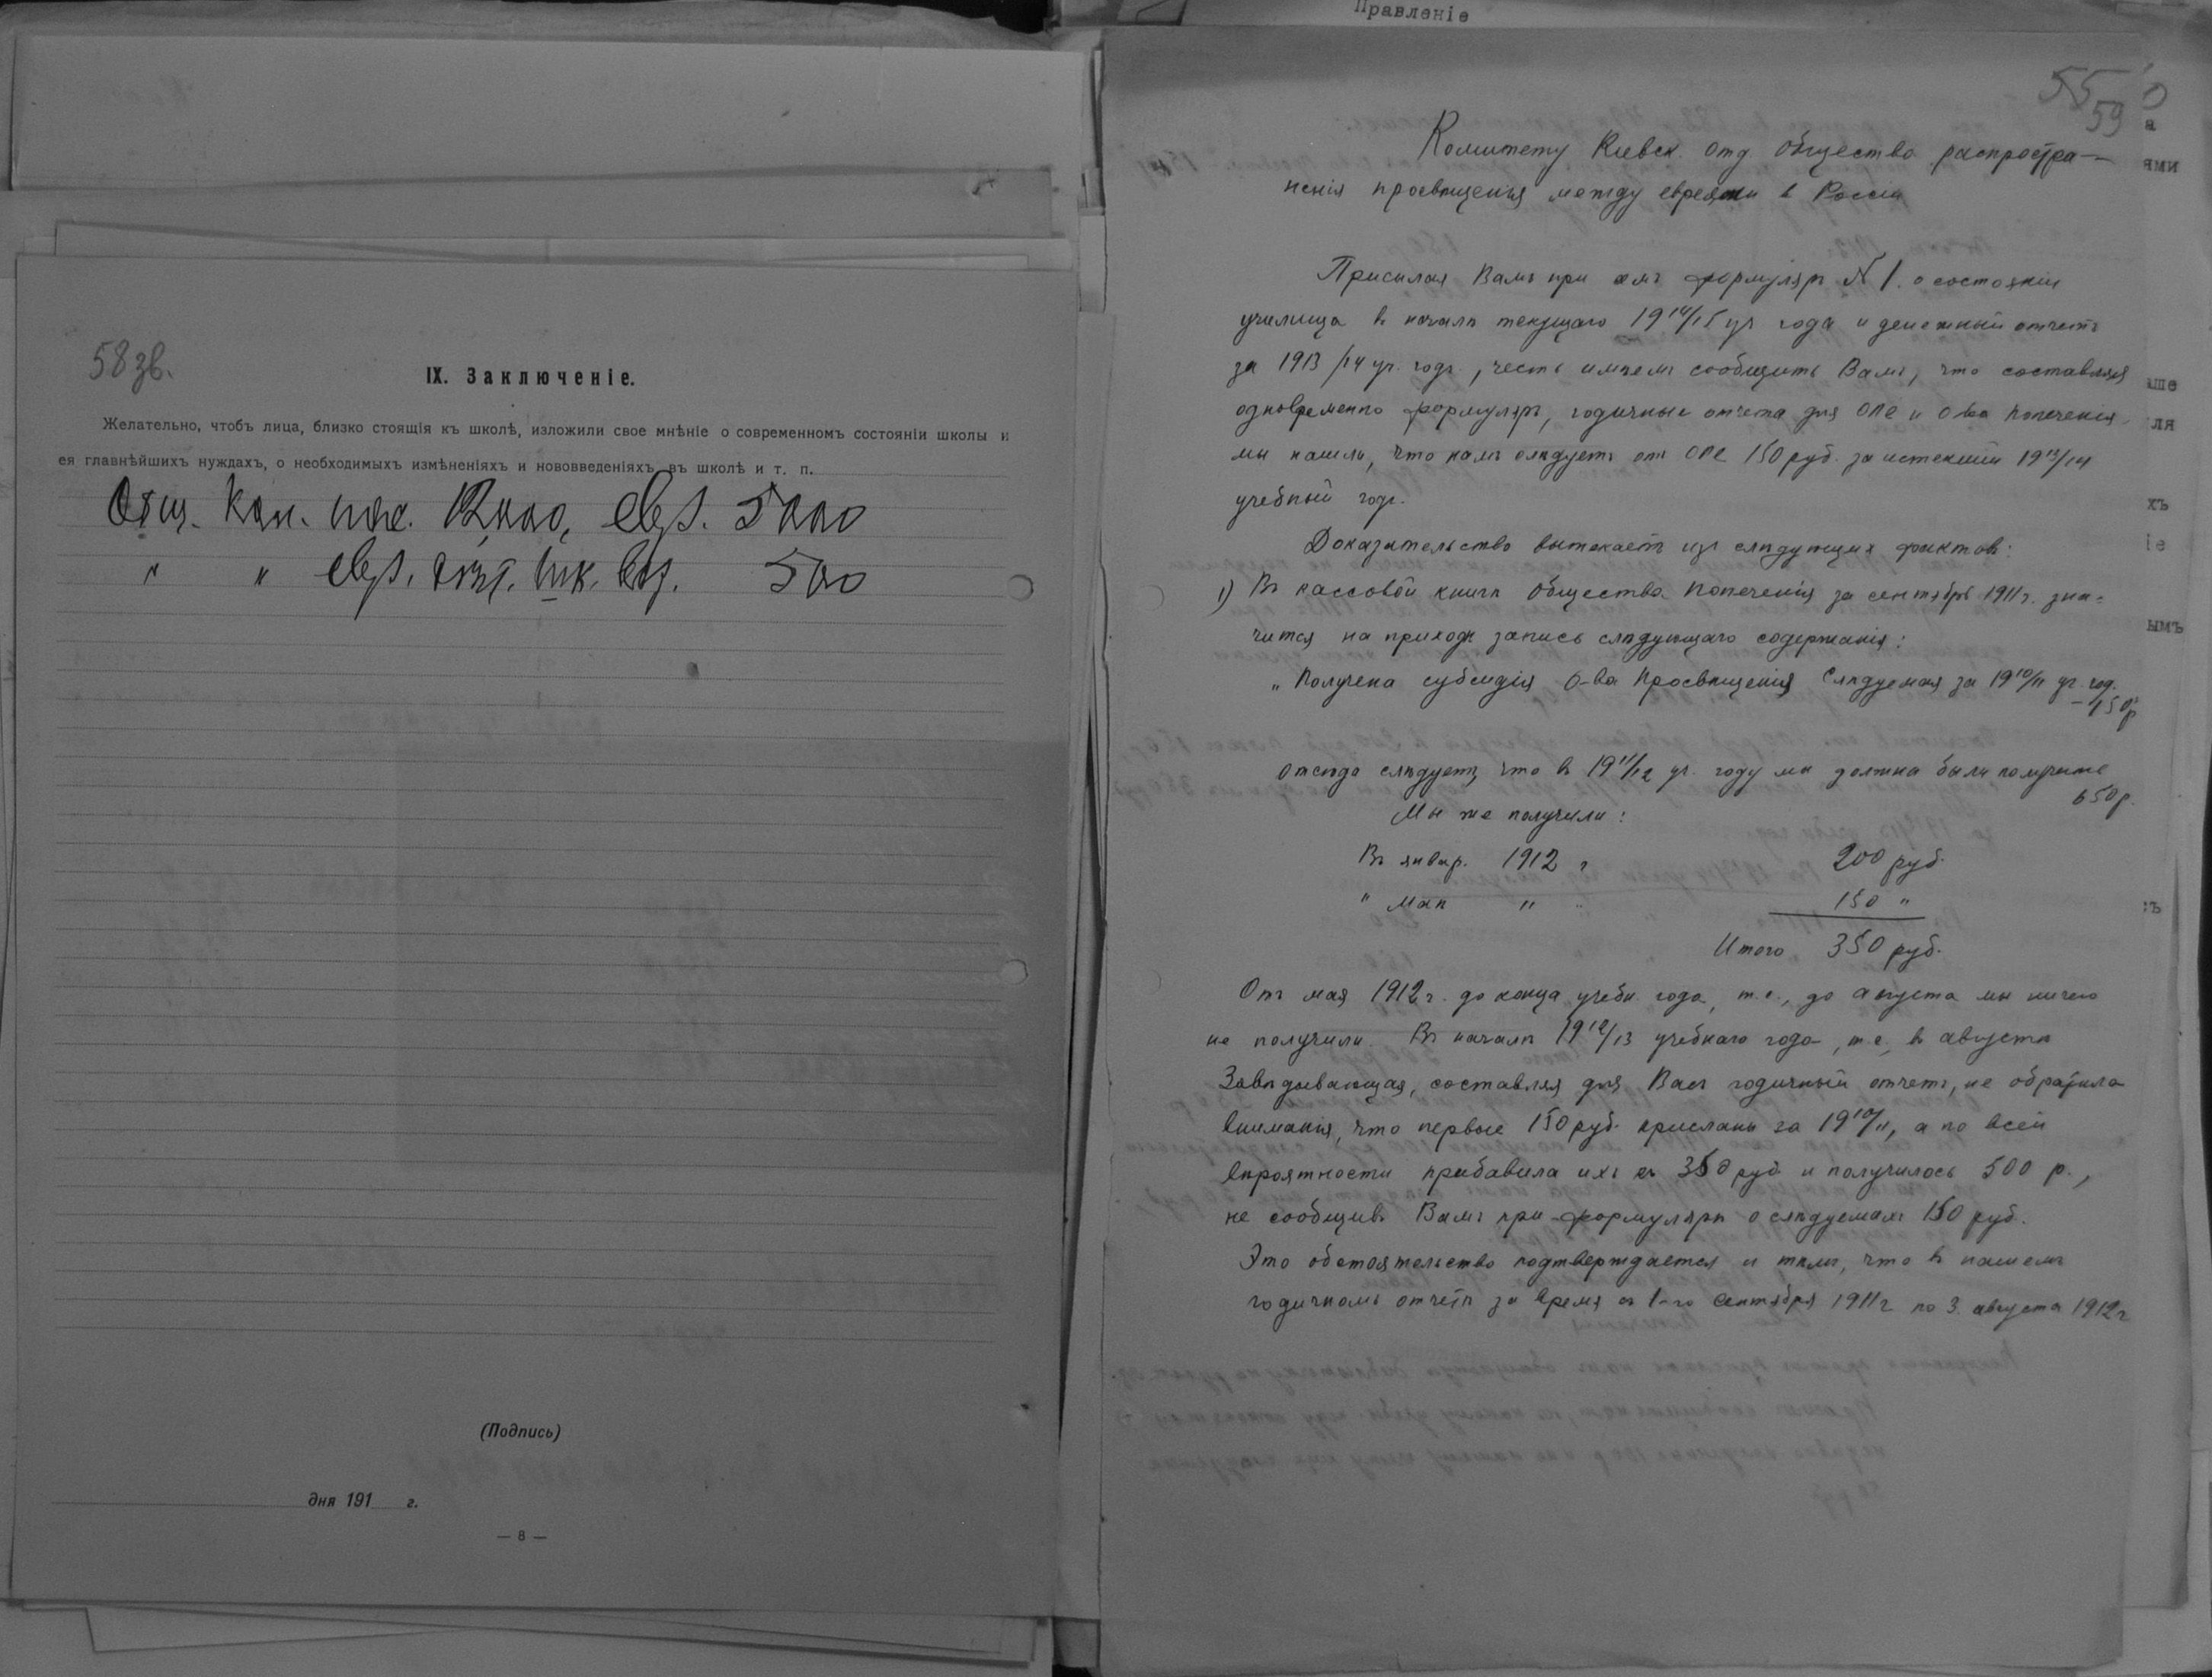 58 зв.
IX. Заключеніе.
Желательно, чтобъ лица, близко стоящія къ школѣ, изложили свое мнѣніе о современномъ состояніи школы и
ея главнѣйшихъ нуждахъ, о необходимыхъ измѣненіяхъ и нововведеніяхъ въ школѣ и т. п.
Общ. кол. нас. 12,000, евр. 5000
" " евр. дѣт. шк. воз. 500
(Подпись)
дня 191 г.
— 8 —
Правленіе
55
59
Комитету Кіевск. отд Общества распростра-
ненія просвѣщенія между евреями в Россіи
Присылая Вамъ при семъ формуляръ №1. о состояніи
училища в началѣ текущаго 1914/15 уч года и денежный отчетъ
за 1913/14 уч. годъ, честь имѣемъ сообщить Вамъ, что составляя
одновременно формуляръ, годичные отчета для ОПЕ и О-ва Попеченія
мы нашли, что намъ слѣдуетъ отъ ОПЕ 150 руб. за истекшій 1913/14
учебный годъ.
Доказательство вытекаетъ изъ слѣдующихъ фактовъ:
1) Въ кассовой книгѣ Общества Попеченія за сентябрь 1911 г. зна=
чится на приходѣ запись слѣдующаго содержанія:
"Получена субсидія О-ва Просвѣщенія Слѣдуемая за 1910/11 уч. год.
– 150 р."
Отсюда слѣдуетъ, что в 1911/12 уч. году мы должна были получить
650 р.
Мы же получили:
Въ январ. 1912 г 200 руб.
" Маѣ " " 150 "
Итого 350 руб.
Отъ мая 1912 г. до конца учебн. года, т.е., до августа мы ничего
не получили. Въ началѣ 1912/13 учебнаго года, т.е. в августѣ
Завѣдывающая, составляя для Васъ годичный отчетъ, не обратила
вниманія, что первые 150 руб. присланы за 1910/11, а по всей
вѣроятности прибавила ихъ къ 350 руб. и получилось 500 р.,
не сообщивъ Вамъ при формулярѣ о слѣдуемыхъ 150 руб.
Это обстоятельство подтверждается и тѣмъ, что в нашемъ
годичномъ отчетѣ за время съ 1-го Сентября 1911 г. по 3 августа 1912 г